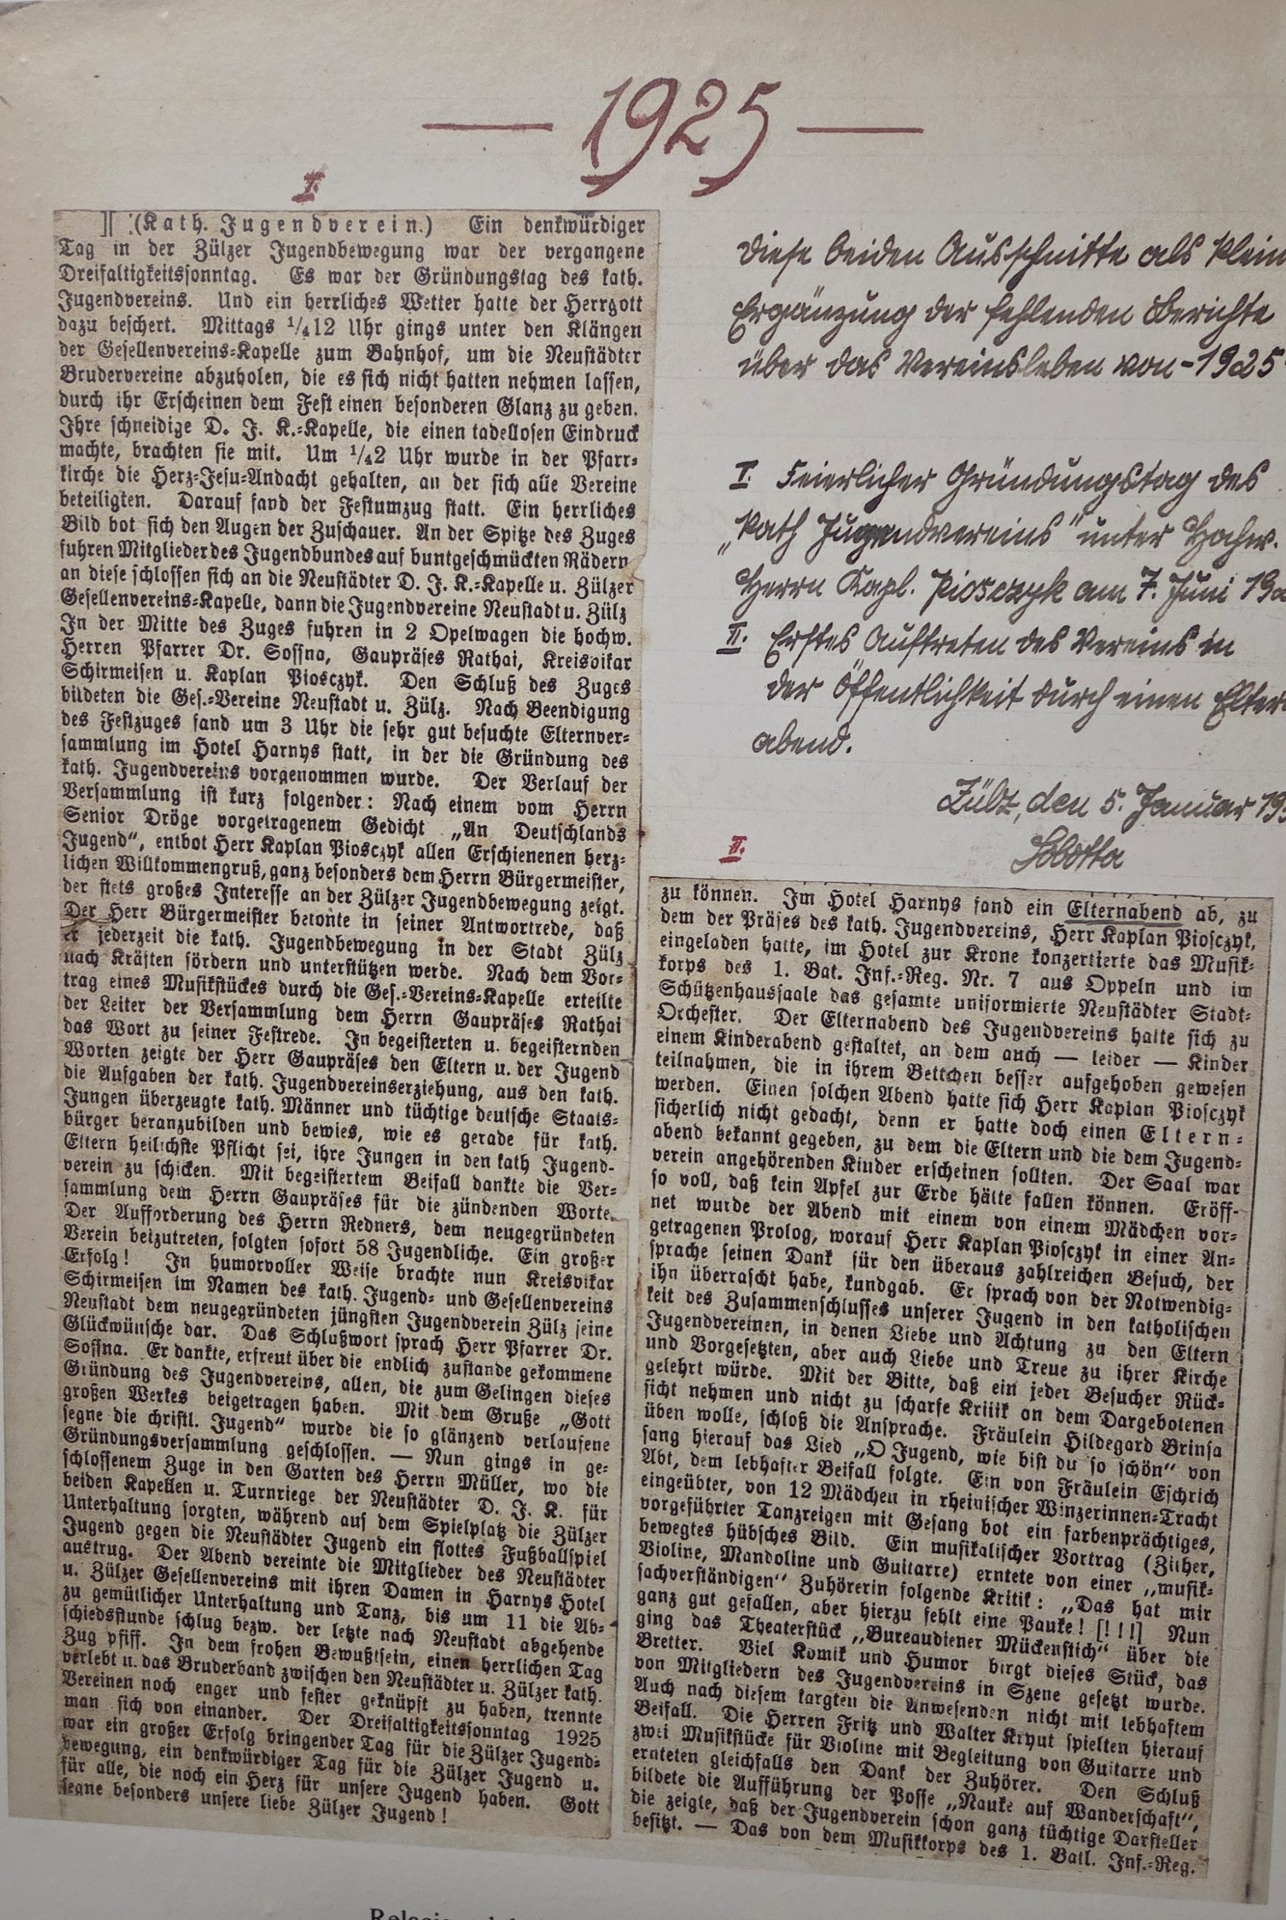 — 1925 —
I.
][ (Kath. Jugendverein.) Ein denkwürdiger
Tag in der Zülzer Jugendbewegung war der vergangene
Dreifaltigkeitssonntag. Es war der Gründungstag des kath.
Jugendvereins. Und ein herrliches Wetter hatte der Herrgott
dazu beschert. Mittags ¹/₄12 Uhr gings unter den Klängen
der Gesellenvereins-Kapelle zum Bahnhof, um die Neustädter
Brudervereine abzuholen, die es sich nicht hatten nehmen lassen,
durch ihr Erscheinen dem Fest einen besonderen Glanz zu geben.
Ihre schneidige D. J. K.-Kapelle, die einen tadellosen Eindruck
machte, brachten sie mit. Um ¹/₄2 Uhr wurde in der Pfarr-
kirche die Herz-Jesu-Andacht gehalten, an der sich alle Vereine
beteiligten. Darauf fand der Festumzug statt. Ein herrliches
Bild bot sich den Augen der Zuschauer. An der Spitze des Zuges
fuhren Mitglieder des Jugendbundes auf buntgeschmückten Rädern
an diese schlossen sich an die Neustädter D. J. K.-Kapelle u. Zülzer
Gesellenvereins-Kapelle, dann die Jugendvereine Neustadt u. Zülz
In der Mitte des Zuges fuhren in 2 Opelwagen die hochw.
Herren Pfarrer Dr. Sossna, Gaupräses Rathai, Kreisvikar
Schirmeisen u. Kaplan Piosczyk. Den Schluß des Zuges
bildeten die Ges.-Vereine Neustadt u. Zülz. Nach Beendigung
des Festzuges fand um 3 Uhr die sehr gut besuchte Elternver-
sammlung im Hotel Harnys statt, in der die Gründung des
kath. Jugendvereins vorgenommen wurde. Der Verlauf der
Versammlung ist kurz folgender: Nach einem vom Herrn
Senior Dröge vorgetragenem Gedicht „An Deutschlands
Jugend“, entbot Herr Kaplan Piosczyk allen Erschienenen herz-
lichen Willkommengruß, ganz besonders dem Herrn Bürgermeister,
der stets großes Interesse an der Zülzer Jugendbewegung zeigt.
Der Herr Bürgermeister betonte in seiner Antwortrede, daß
er jederzeit die kath. Jugendbewegung in der Stadt Zülz
nach Kräften fördern und unterstützen werde. Nach dem Vor-
trag eines Musikstückes durch die Ges.-Vereins-Kapelle erteilte
der Leiter der Versammlung dem Herrn Gaupräses Rathai
das Wort zu seiner Festrede. In begeisterten u. begeisternden
Worten zeigte der Herr Gaupräses den Eltern u. der Jugend
die Aufgaben der kath. Jugendvereinserziehung, aus den kath.
Jungen überzeugte kath. Männer und tüchtige deutsche Staats-
bürger heranzubilden und bewies, wie es gerade für kath.
Eltern heilichste Pflicht sei, ihre Jungen in den kath Jugend-
verein zu schicken. Mit begeistertem Beifall dankte die Ver-
sammlung dem Herrn Gaupräses für die zündenden Worte.
Der Aufforderung des Herrn Redners, dem neugegründeten
Verein beizutreten, folgten sofort 58 Jugendliche. Ein großer
Erfolg! In humorvoller Weise brachte nun Kreisvikar
Schirmeisen im Namen des kath. Jugend- und Gesellenvereins
Neustadt dem neugegründeten jüngsten Jugendverein Zülz seine
Glückwünsche dar. Das Schlußwort sprach Herr Pfarrer Dr.
Sossna. Er dankte, erfreut über die endlich zustande gekommene
Gründung des Jugendvereins, allen, die zum Gelingen dieses
großen Werkes beigetragen haben. Mit dem Gruße „Gott
segne die christl. Jugend“ wurde die so glänzend verlaufene
Gründungsversammlung geschlossen. — Nun gings in ge-
schlossenem Zuge in den Garten des Herrn Müller, wo die
beiden Kapellen u. Turnriege der Neustädter D. J. K. für
Unterhaltung sorgten, während auf dem Spielplatz die Zülzer
Jugend gegen die Neustädter Jugend ein flottes Fußballspiel
austrug. Der Abend vereinte die Mitglieder des Neustädter
u. Zülzer Gesellenvereins mit ihren Damen in Harnys Hotel
zu gemütlicher Unterhaltung und Tanz, bis um 11 die Ab-
schiedsstunde schlug bezw. der letzte nach Neustadt abgehende
Zug pfiff. In dem frohen Bewußtsein, einen herrlichen Tag
verlebt u. das Bruderband zwischen den Neustädter u. Zülzer kath.
Vereinen noch enger und fester geknüpft zu haben, trennte
man sich von einander. Der Dreifaltigkeitssonntag 1925
war ein großer Erfolg bringender Tag für die Zülzer Jugend-
bewegung, ein denkwürdiger Tag für die Zülzer Jugend u.
für alle, die noch ein Herz für unsere Jugend haben. Gott
segne besonders unsere liebe Zülzer Jugend!
Diese beiden Ausschnitte als klein
Ergänzung der fehlenden Berichte
über das Vereinsleben von - 1925
I. Feierlicher Gründungstag des
„Kath Jugendvereins“ unter Hochw.
Herrn Kapl. Piosczyk am 7. Juni 19
II. Erstes Auftreten des Vereins in
der Öffentlichkeit durch einen Eltern
abend.
Zülz, den 5. Januar 19
Sobotta
II.
zu können. Im Hotel Harnys fand ein Elternabend ab, zu
dem der Präses des kath. Jugendvereins, Herr Kaplan Piosczyk,
eingeladen hatte, im Hotel zur Krone konzertierte das Musik-
korps des 1. Bat. Inf.-Reg. Nr. 7 aus Oppeln und im
Schützenhaussaale das gesamte uniformierte Neustädter Stadt-
Orchester. Der Elternabend des Jugendvereins hatte sich zu
einem Kinderabend gestaltet, an dem auch — leider — Kinder
teilnahmen, die in ihrem Bettchen besser aufgehoben gewesen
werden. Einen solchen Abend hatte sich Herr Kaplan Piosczyk
sicherlich nicht gedacht, denn er hatte doch einen Eltern-
abend bekannt gegeben, zu dem die Eltern und die dem Jugend-
verein angehörenden Kinder erscheinen sollten. Der Saal war
so voll, daß kein Apfel zur Erde hätte fallen können. Eröff-
net wurde der Abend mit einem von einem Mädchen vor-
getragenen Prolog, worauf Herr Kaplan Piosczyk in einer An-
sprache seinen Dank für den überaus zahlreichen Besuch, der
ihn überrascht habe, kundgab. Er sprach von der Notwendig-
keit des Zusammenschlusses unserer Jugend in den katholischen
Jugendvereinen, in denen Liebe und Achtung zu den Eltern
und Vorgesetzten, aber auch Liebe und Treue zu ihrer Kirche
gelehrt würde. Mit der Bitte, daß ein jeder Besucher Rück-
sicht nehmen und nicht zu scharfe Kritik an dem Dargebotenen
üben wolle, schloß die Ansprache. Fräulein Hildegard Brinsa
sang hierauf das Lied „O Jugend, wie bist du so schön“ von
Abt, dem lebhafter Beifall folgte. Ein von Fräulein Eschrich
eingeübter, von 12 Mädchen in rheinischer Winzerinnen-Tracht
vorgeführter Tanzreigen mit Gesang bot ein farbenprächtiges,
bewegtes hübsches Bild. Ein musikalischer Vortrag (Zither,
Violine, Mandoline und Guitarre) erntete von einer „musik-
sachverständigen“ Zuhörerin folgende Kritik: „Das hat mir
ganz gut gefallen, aber hierzu fehlt eine Pauke! [!!!] Nun
ging das Theaterstück „Bureaudiener Mückenstich“ über die
Bretter. Viel Komik und Humor birgt dieses Stück, das
von Mitgliedern des Jugendvereins in Szene gesetzt wurde.
Auch nach diesem kargten die Anwesenden nicht mit lebhaftem
Beifall. Die Herren Fritz und Walter Kryut spielten hierauf
zwei Musikstücke für Violine mit Begleitung von Guitarre und
ernteten gleichfalls den Dank der Zuhörer. Den Schluß
bildete die Aufführung der Posse „Nauke auf Wanderschaft“,
die zeigte, daß der Jugendverein schon ganz tüchtige Darsteller
besitzt. — Das von dem Musikkorps des 1. Batl. Inf.-Reg.